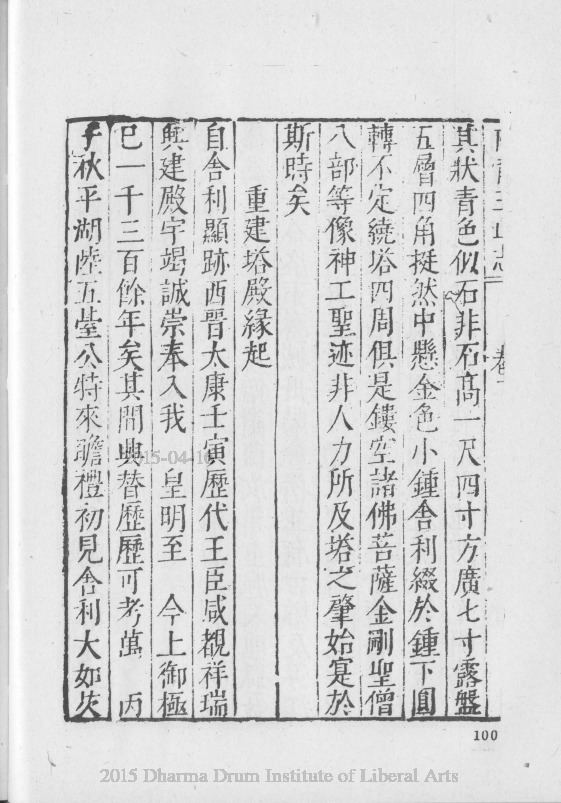 其狀青色似石非石高一尺四寸方廣七寸露盤
五層四角挺然中懸金色小鍾舍利綴於鍾下圓
轉不定繞塔四周俱是鏤空諸佛菩薩金剛聖僧
八部等像神工聖迹非人力所及塔之肇始寔於
斯時矣
重建塔殿緣起
自舍利顯跡西晉大康壬寅歷代王臣咸覩祥瑞
興建殿宇竭誠崇奉入我 皇明至 今上御極
巳一千三百餘年矣其間興替歷歷可考萬 丙
子秋平湖陸五臺公特來瞻禮初見舍利大如芡
100
2015-04-16
2015 Dharma Drum Institute of Liberal Arts